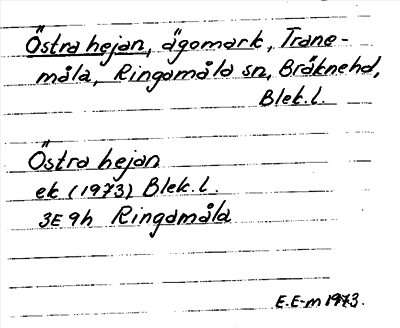 Östra hejan, ägomark, Trane-
måla, Ringamåla sn, Bräknehd,
Blek.l.
Östra hejan
ek (1973) Blek.l.
3E 9h Ringamåla
E.E-m 1973.